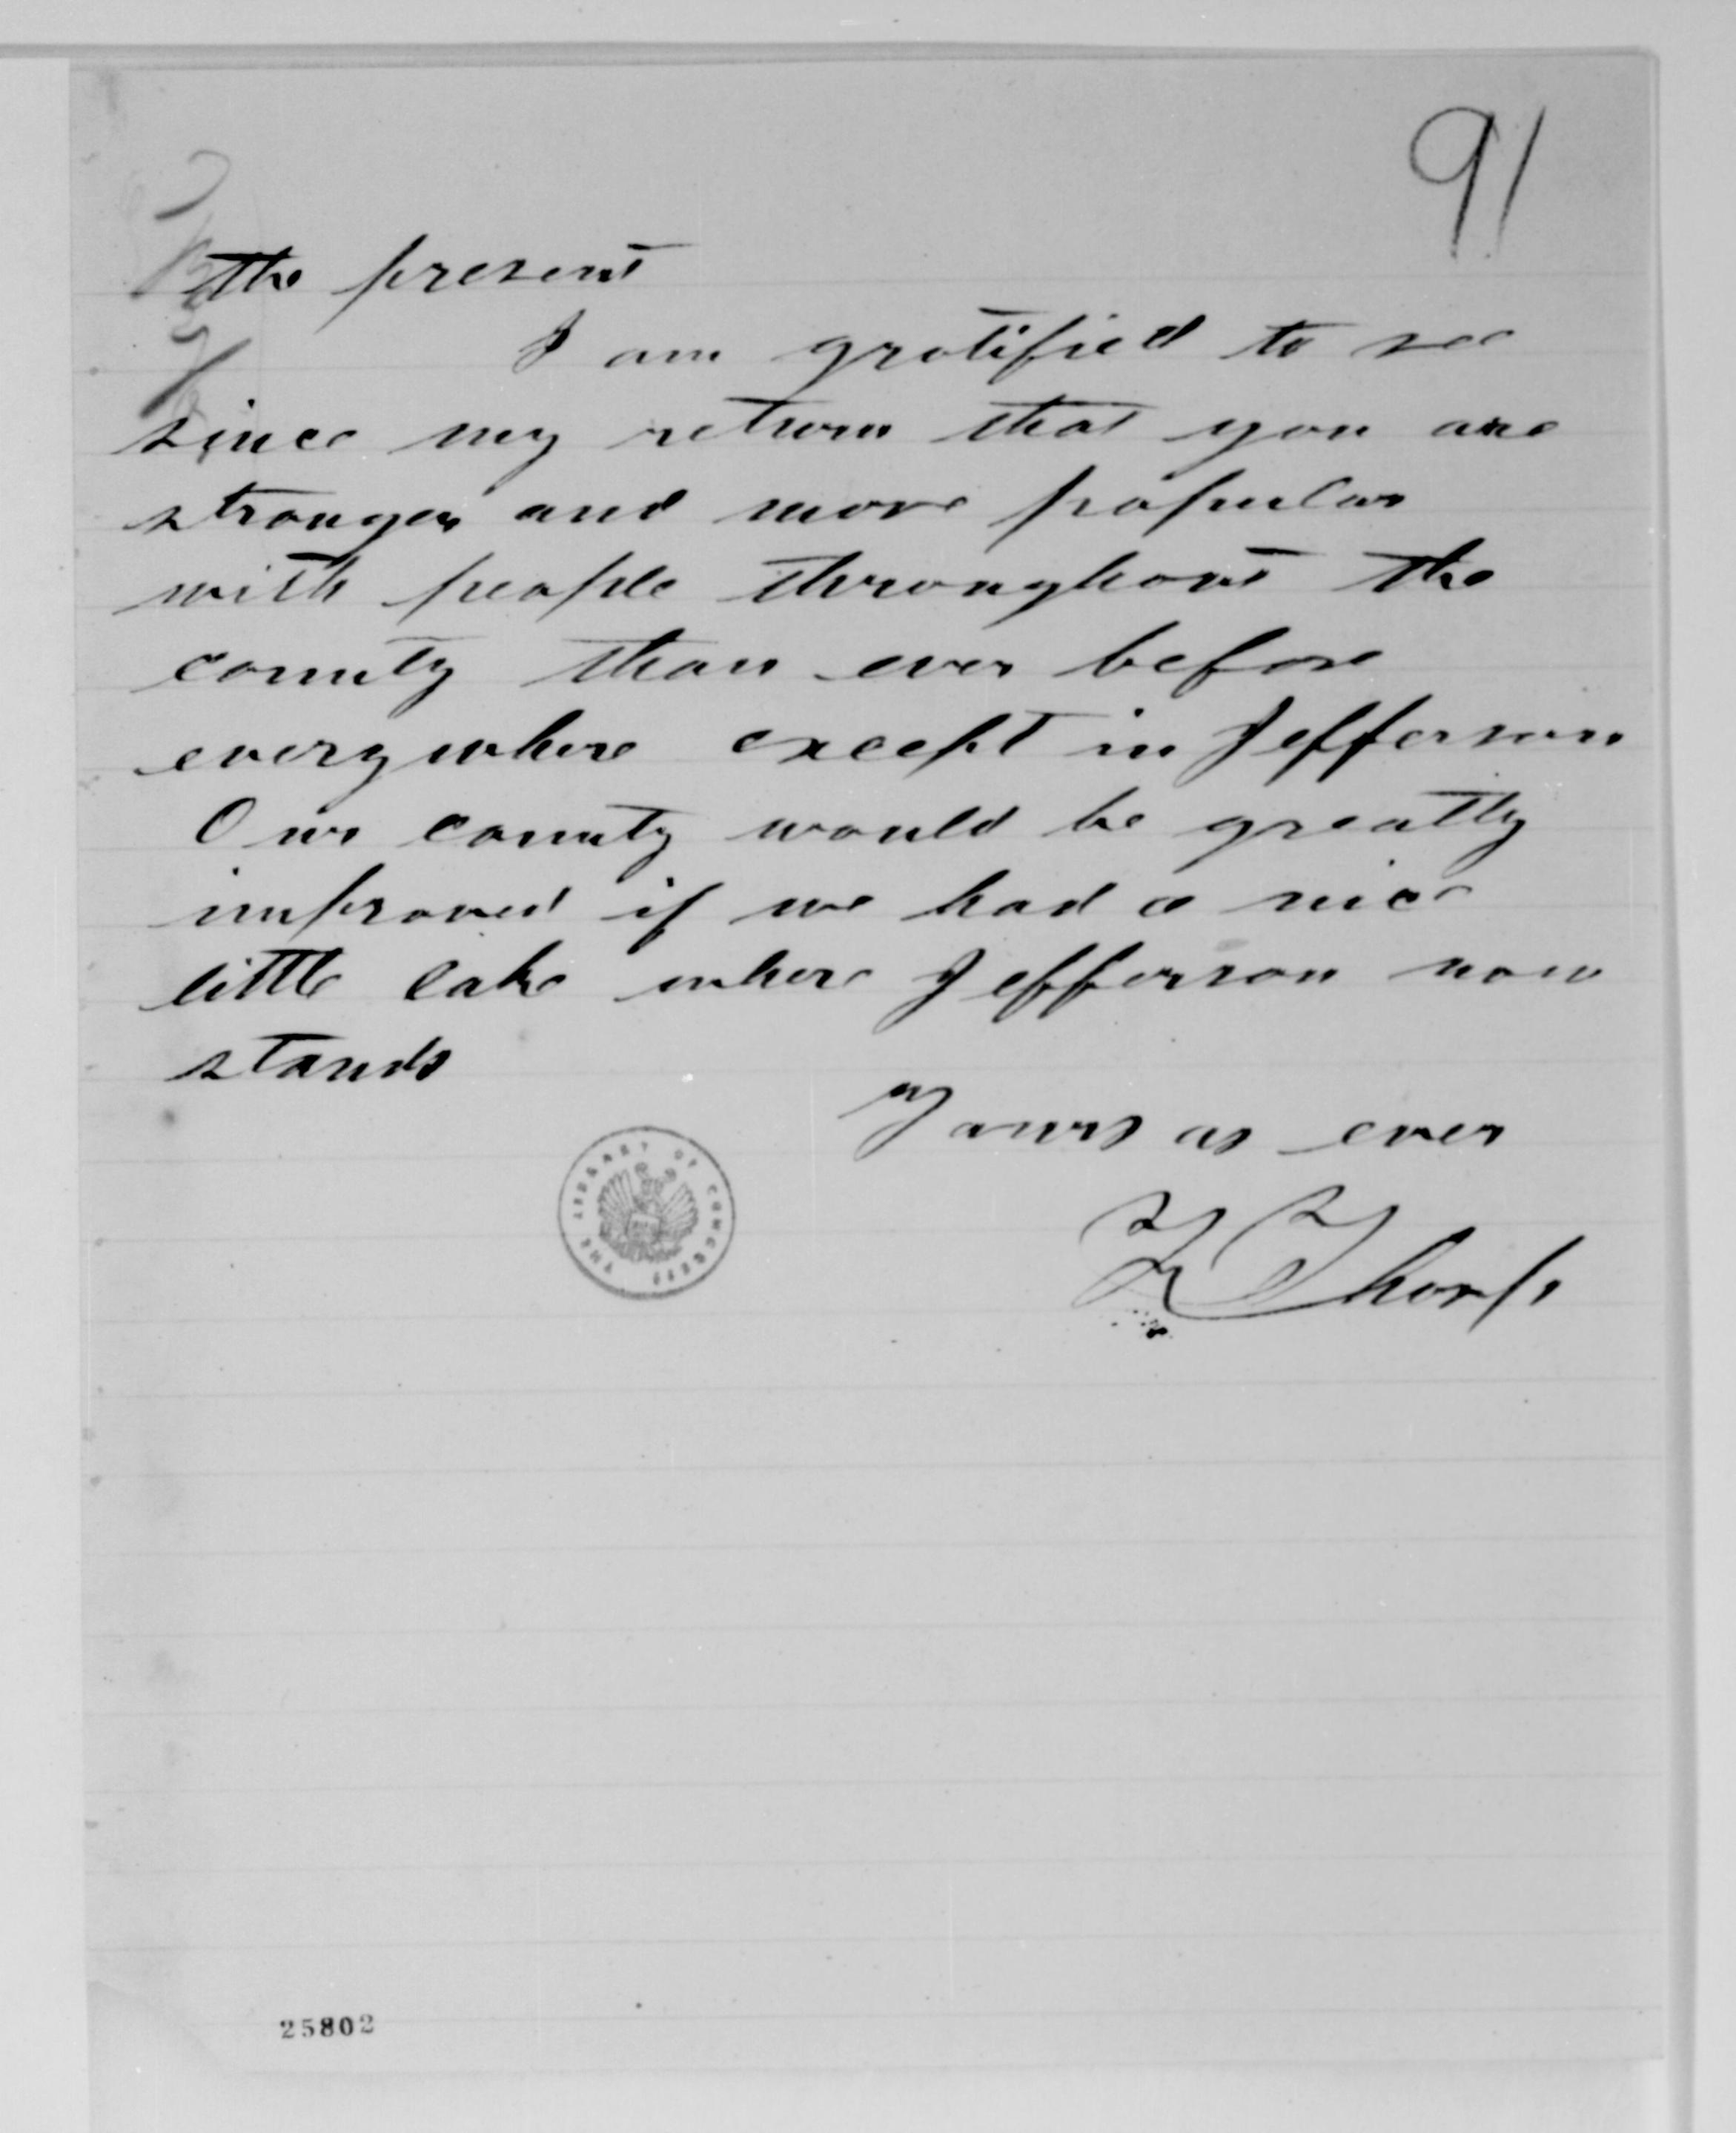 91
the present
I am gratified to see
since my return that you are
stronger and more popular
with people throughout the
county than ever before
everywhere except in Jefferson
Our county would be greatly
improved if we had a nice
little lake where Jefferson now
stands
Yours as ever
Thorp
THE LIBRARY OF CONGRESS
25802